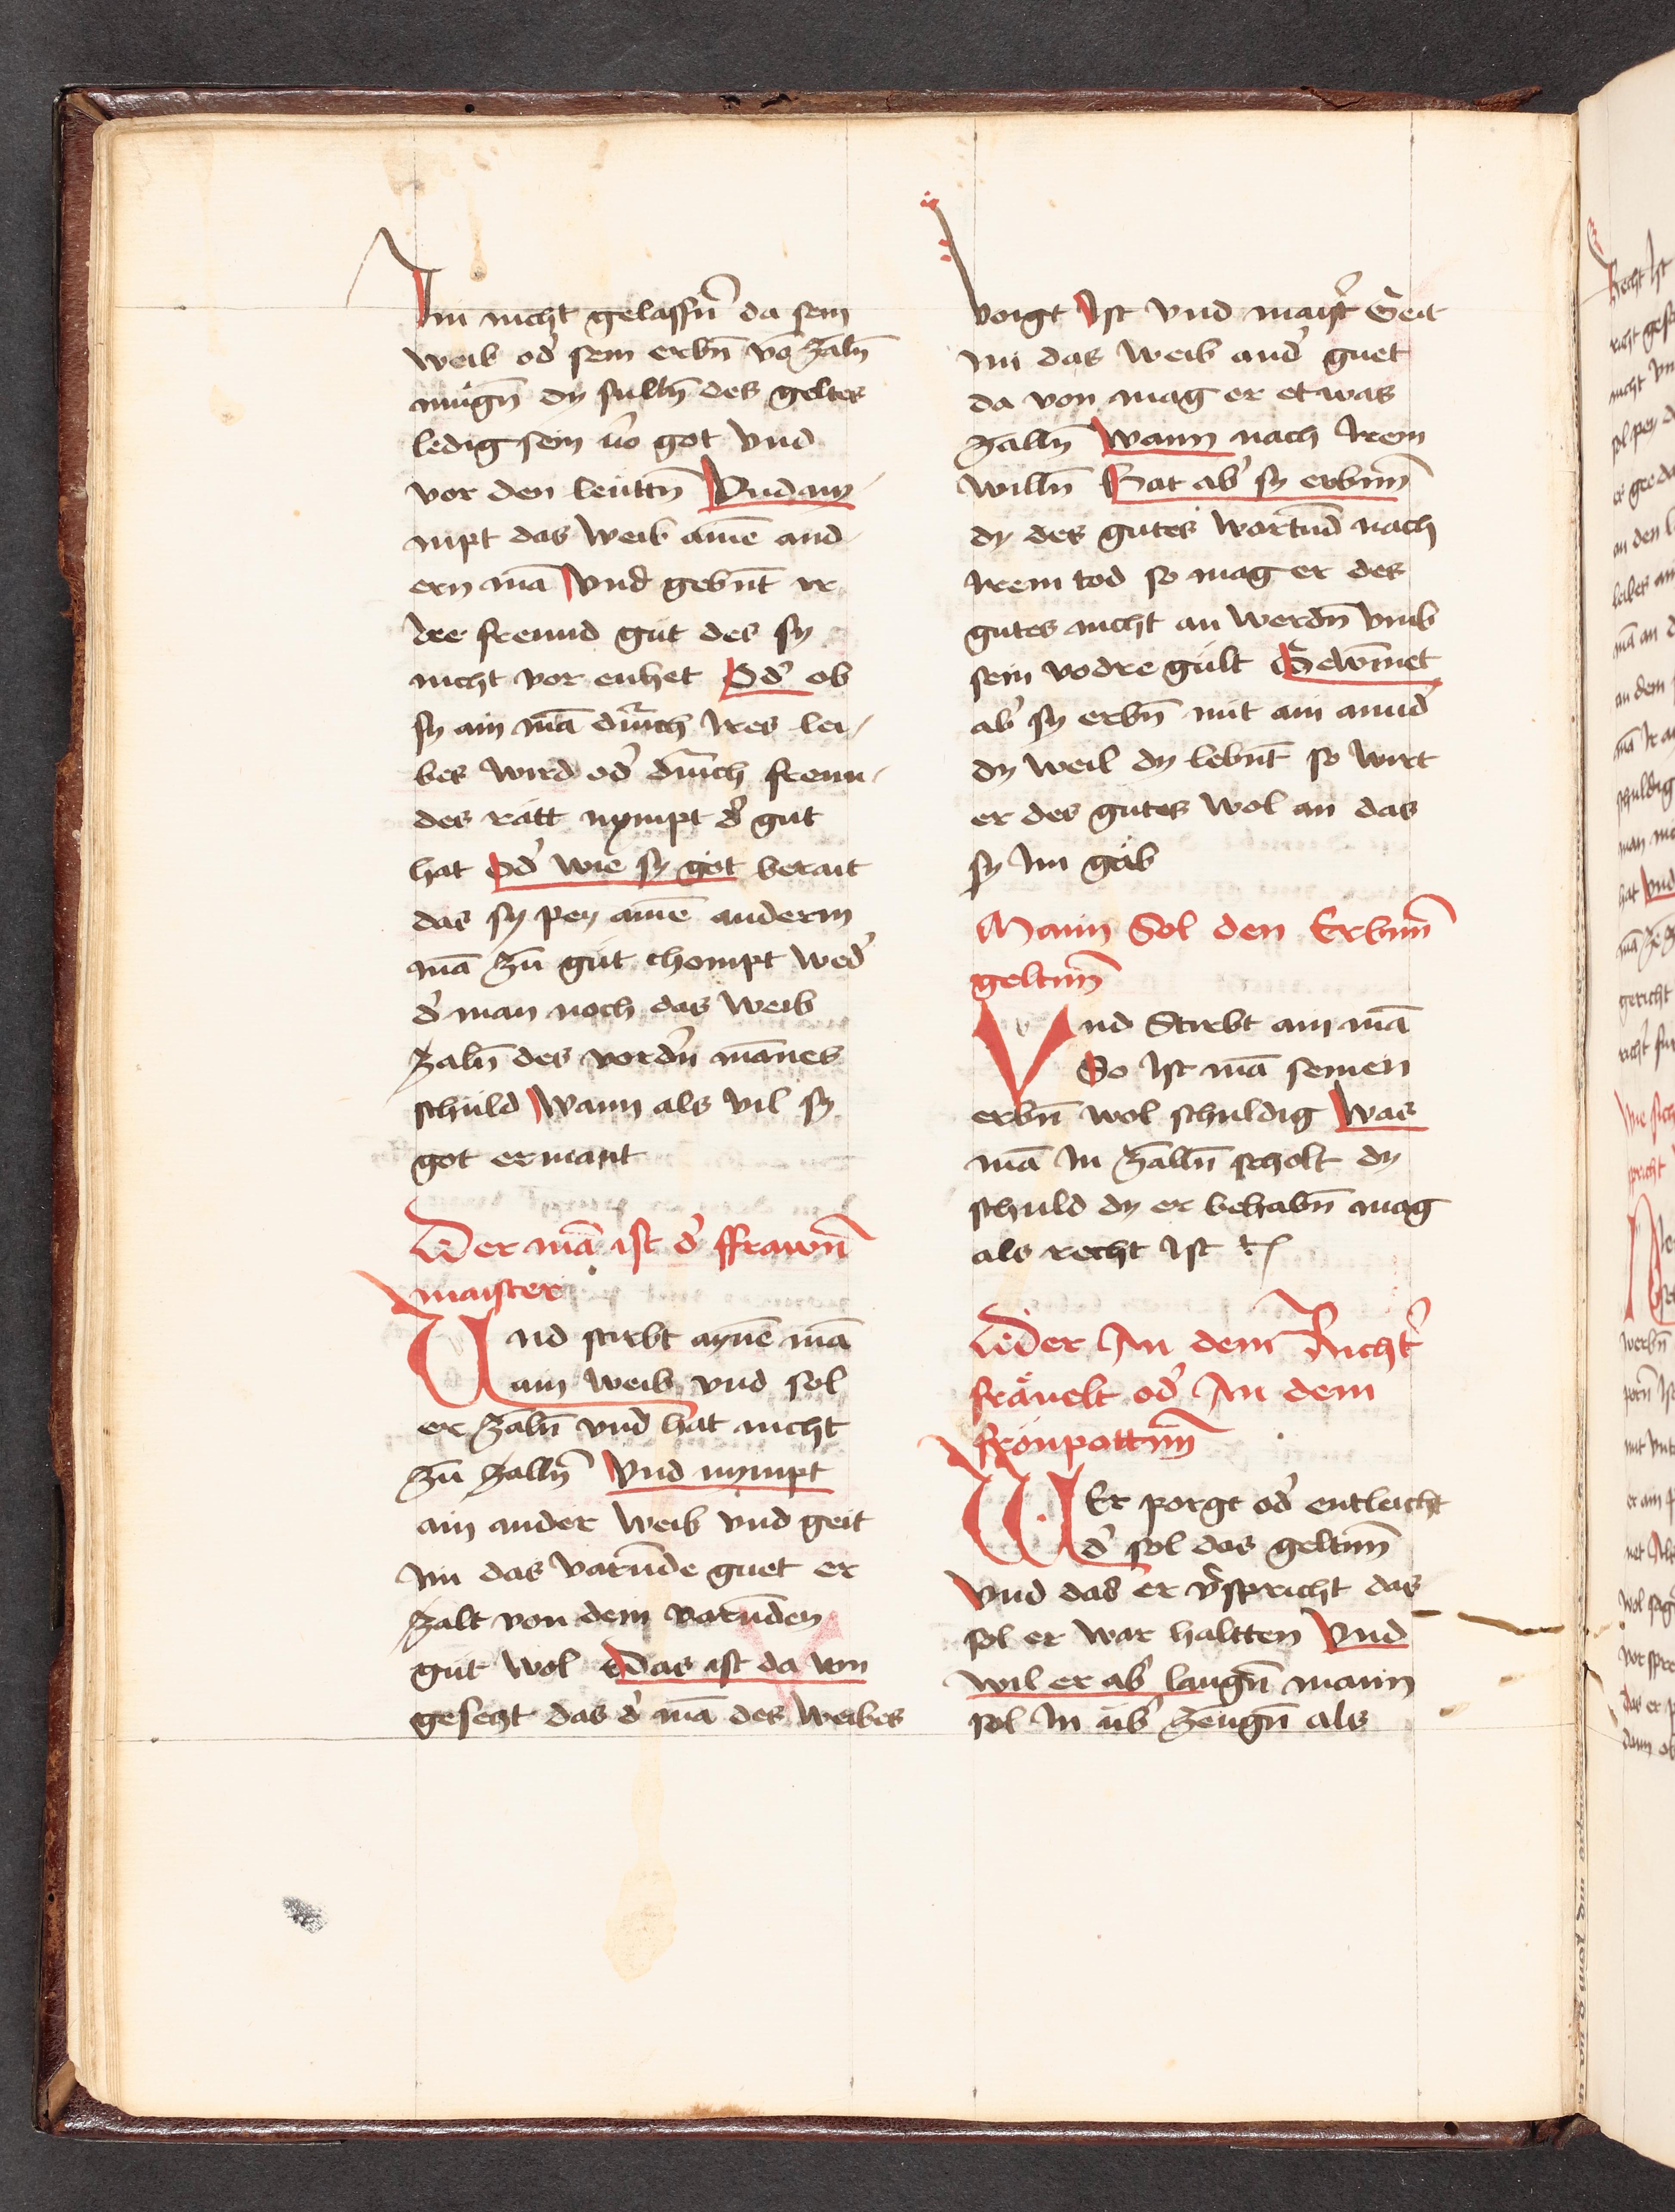 Im nicht gelassn̄ da sein
weib od' sein erbn̄ vō zaln̄
mugn̄ dy sulln̄ des geltes
ledig sein vō got vnd
vor den leuttn̄ Vnd am
nipt das weib ainē and
ern mā Vnd gebnt̄ ir
dre freund gut des sy
nicht vor enhet Od' ob
sy ain mā durich Ires lei
bes wird od' durich freun
des rātt nympt d' gut
hat Od' wie sy got berait
das sy pey ainē anderm
mā zū gut chompt wed'
d' man noch das weib
zaln̄ des vordn̄ mānes
schuld Wann als vil sy
got ermant
Der mā ist d' ffrawn̄
maister
Vnd stirbt aynē mā
ain weib vnd sol
er zaln̄ vnd hat nicht
zū zalln̄ Vnd nympt
ain ander weib vnd geit
Im das varūde guet er
zalt von dem varūden
gut wol Das ist da von
geseczt das d' mā des weibes
voigt Ist vnd maist' Geit
im das weib and' guet
da von mag er etwas
zalln̄ Wann nach Irem
willn̄ Hat ab' sy erbnn̄
dy des gutes wartūd nach
Irem tod so mag er des
gutes nicht an werdn̄ vmb
sein vodre gült Gewīnet
ab' sy erbn̄ mit ain annd'
dy weil dy lebnt̄ so wirt
er des gutes wol an das
sy Im gab
Mann Sol den Erbnn̄
geltnn̄
Vnd Stirbt ain mā
So Ist mā seinen
erbn̄ wol schuldig Was
mā In zalln̄ scholt dy
schuld dy er behabn̄ mag
als recht Ist
Wder In dem Richt'
frävelt od' In dem
fronpottnn̄
WEr porgt od' entleicht
d' sol das geltnn̄
Vnd das er v'spricht das
sol er war haltten Vnd
wil er ab' laugn̄ mann
sol In üb' zeugn̄ als